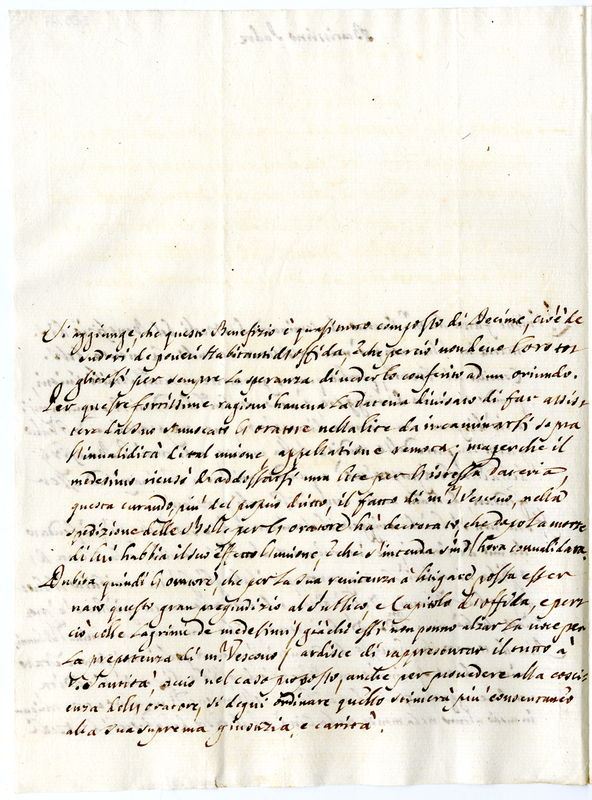 Si aggiunge, che questo Benefizio è quasi tutto composto di Decime, cioè de
sudori de poveri Habitanti d'Offida, e che perciò non deve loro to-
gliersi per sempre la speranza di vederlo conferito ad un oriundo.
Per queste fortissime ragioni haveva la Dataria divisato di far assis-
tere dal suo Avvocato l'Oratore nella lite da incaminarsi sopra
l'invalidità di tal unione, appellatione remota; ma perche il
medesimo ricusò d'addossarsi una lite per l'istessa Dataria,
questa curando più del proprio dritto, il fatto di m.r Vescovo, nella
spedizione delle Bolle per l'Oratore hà decretato, che dopo la morte
di lui habbia il suo effetto l'unione, e che s'intenda sin d'hora convalidata.
Dubita quindi l'Oratore, che per la sua renitenza à litigare possa esser
nato questo gran pregiudizio al Publico, e Capitolo d'Offida, e per-
ciò colle lagrime de medesimi (giache essi non ponno alzar la voce per
la prepotenza di m.r Vescovo) ardisce di rappresentar il tutto à
V. Santità, acciò nel caso proposto, anche per provedere alla cosci-
enza dell'Oratore, si degni ordinare quello stimerà più consentaneo
alla sua suprema giustizia, e carità.